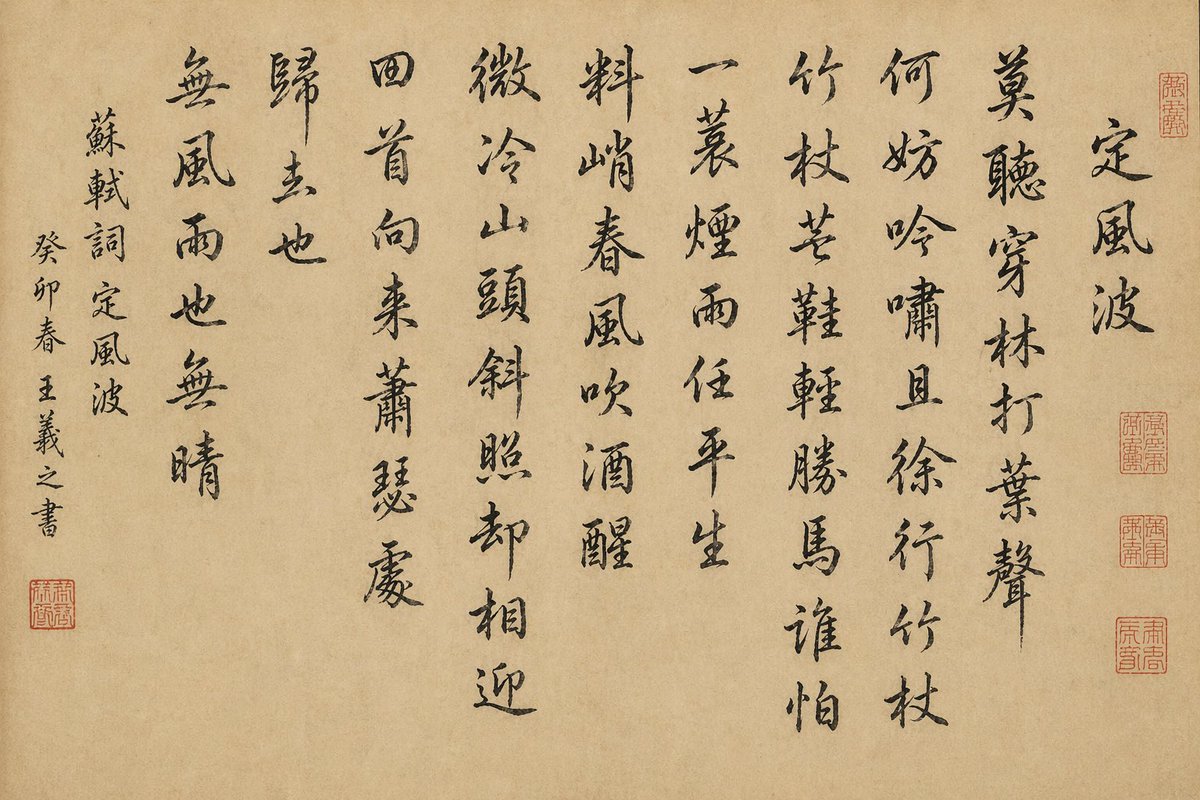 定風波
莫聽穿林打葉聲
何妨吟嘯且徐行竹杖
竹杖芒鞋輕勝馬誰怕
一蓑煙雨任平生
料峭春風吹酒醒
微冷山頭斜照却相迎
回首向来蕭瑟處
歸去也
無風雨也無晴
蘇軾詞定風波
癸卯春王義之書